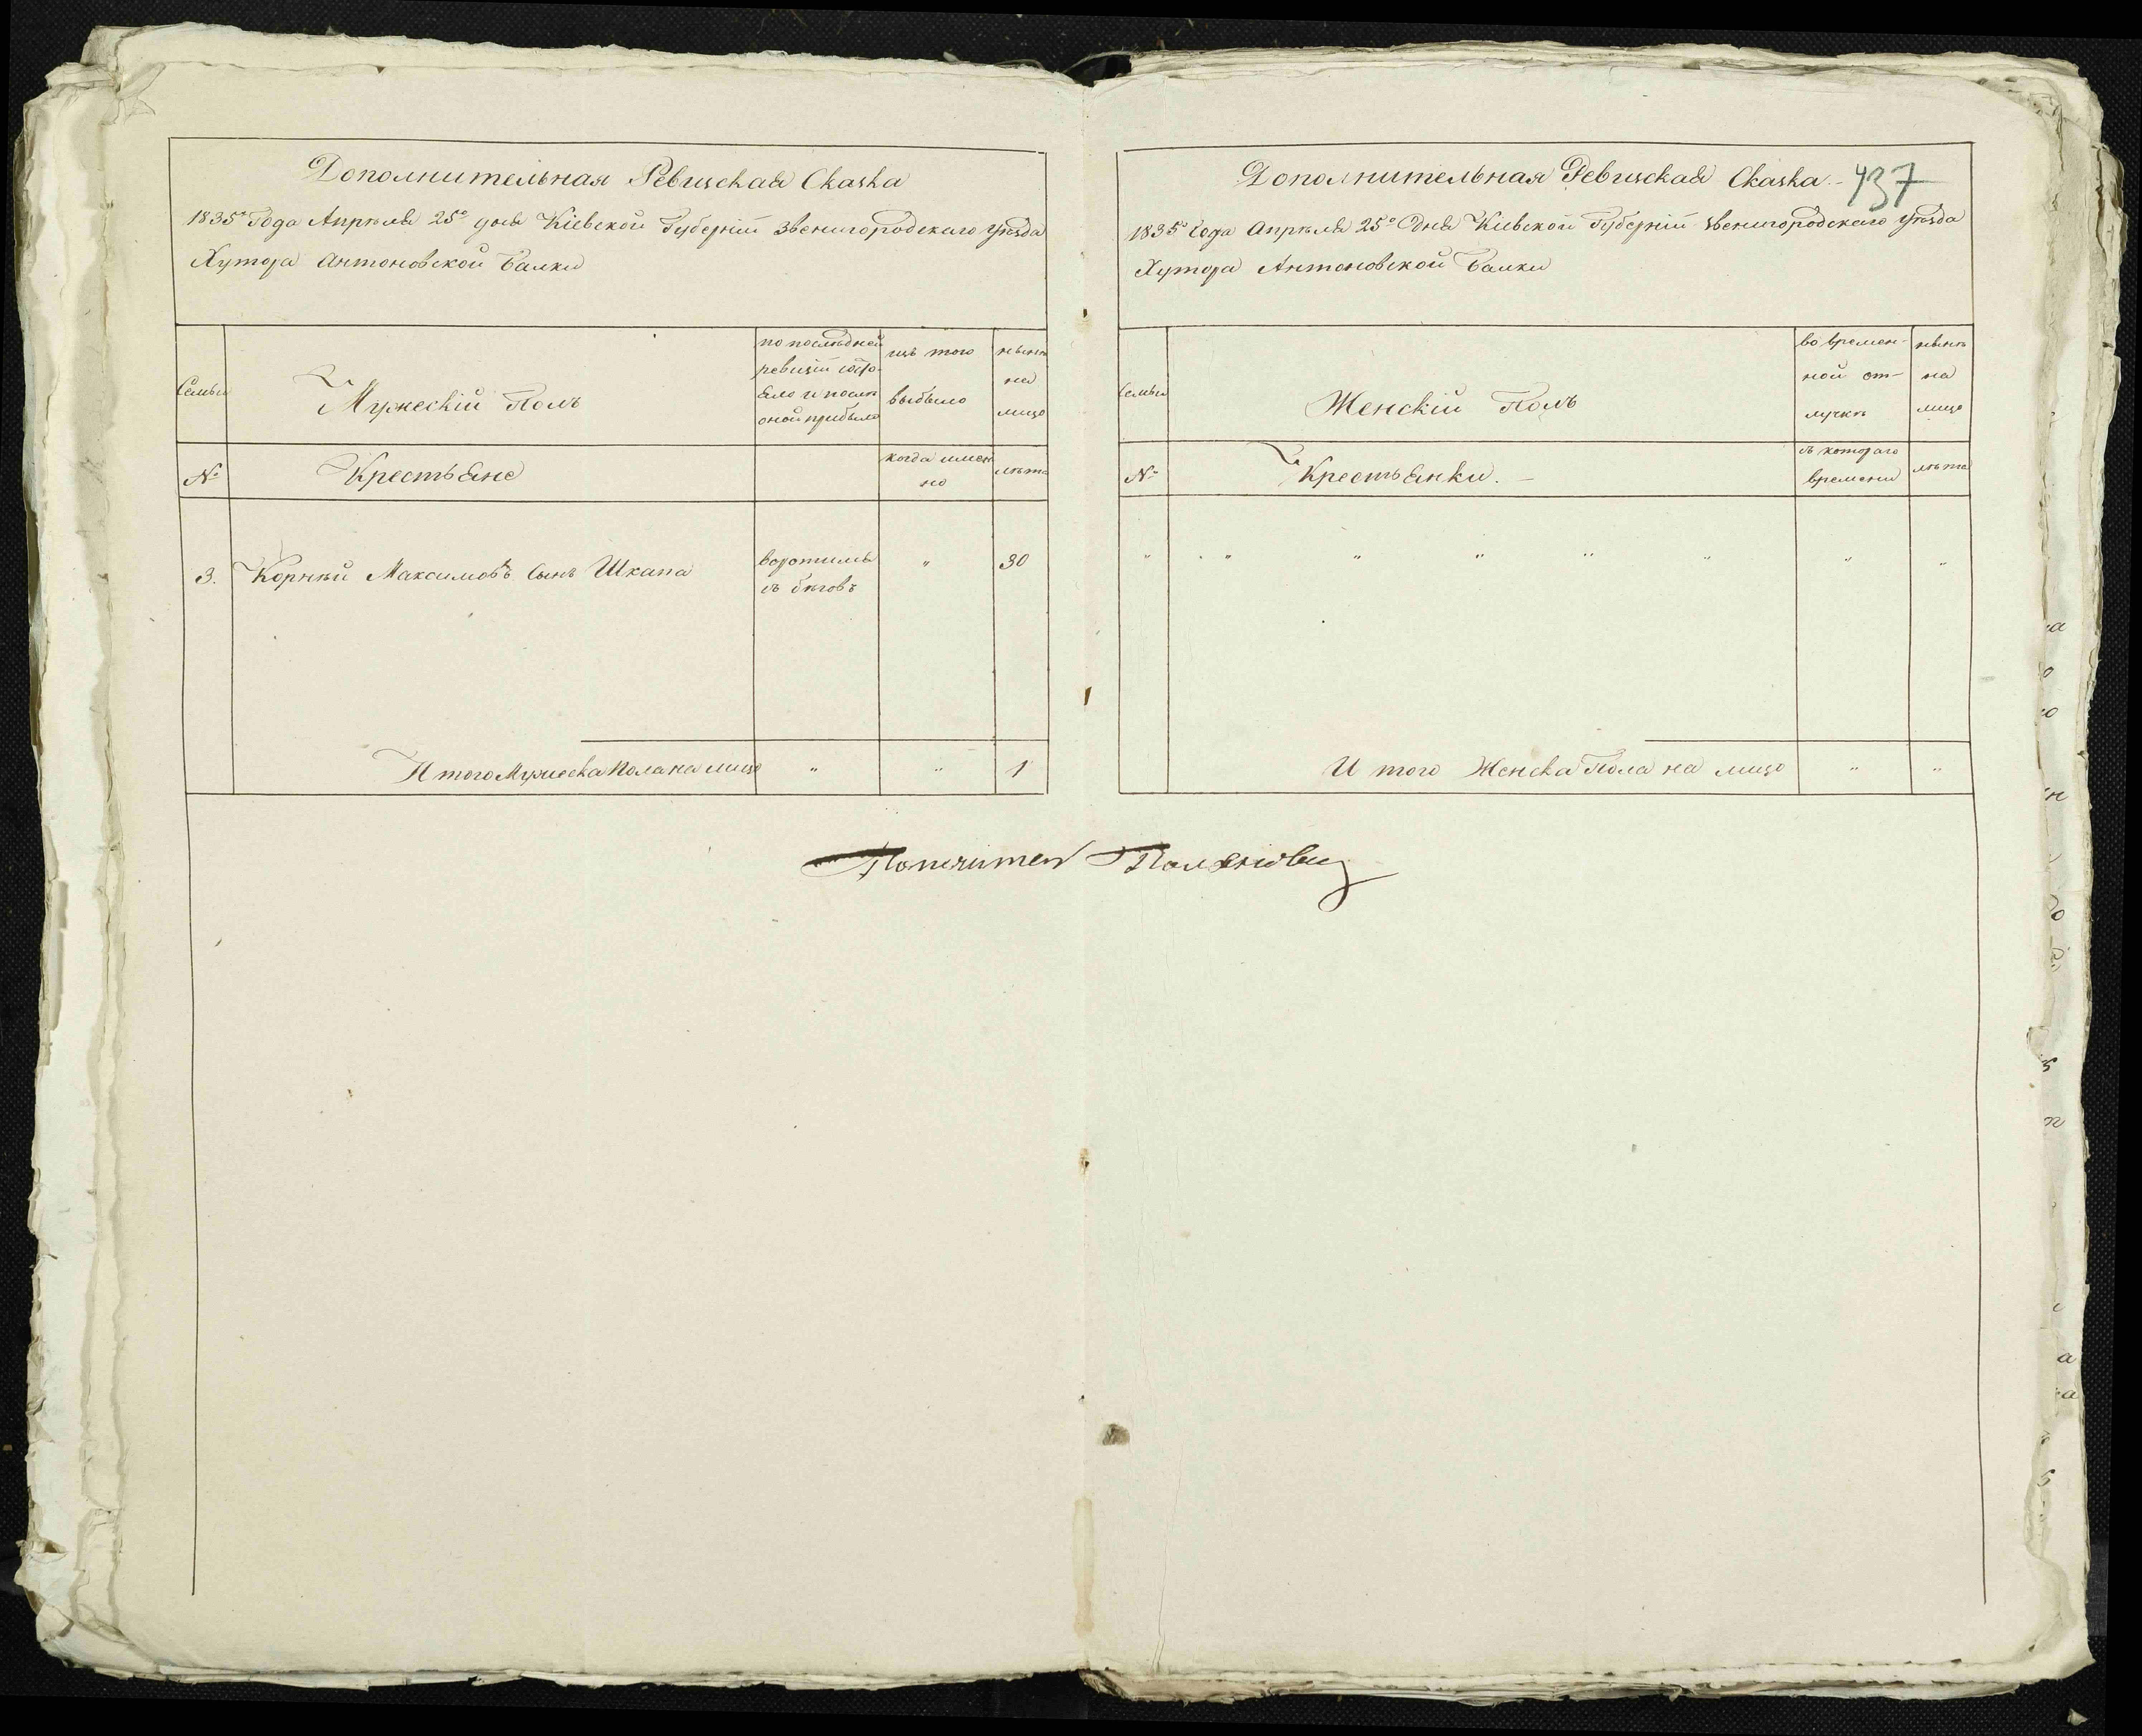 Дополнительная Ревизская Сказка
1835го Года Апрѣля 25го дня Кіевской Губерніи Звенигородскаго Уѣзда
Хутора Антоновской Балки
Семьи
Мужескій Полъ
по послѣдней
ревизіи состо-
яло и послѣ
оной прибыло
изъ того
выбыло
нынѣ
на
лицо
№
Крестьяне
когда имен
но
лѣта
3. Корнѣй Максимовъ Сынъ Шкапа
воротился
съ бѣговъ
" 30
Итого Мужеска Пола на лицо " " 1
Дополнительная Ревизская Сказка.
437
1835го Года Апрѣля 25го Дня Кіевской Губерніи Звенигородскаго Уѣзда
Хутора Антоновской Балки
Семьи
Женскій Полъ
во времен-
ной от-
лучкѣ
нынѣ
на
лицо
№
Крестьянки.
съ котораго
времени
лѣта
" " " " " " " "
Итого Женска Пола на лицо " "